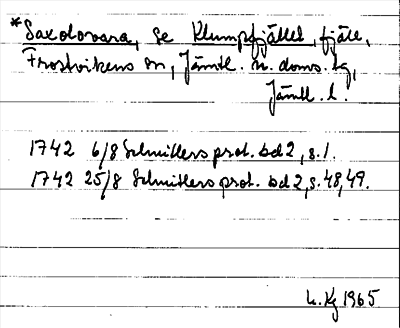 *Saxolovara, se Klumpfjället, fjäll,
Frostvikens sn, Jämtl. n. doms. tg,
Jämtl. l.
1742 6/8 Schnitlers prot. bd 2, s. 1.
1742 25/8 Schnitlers prot. bd 2, s. 48, 49.
1965